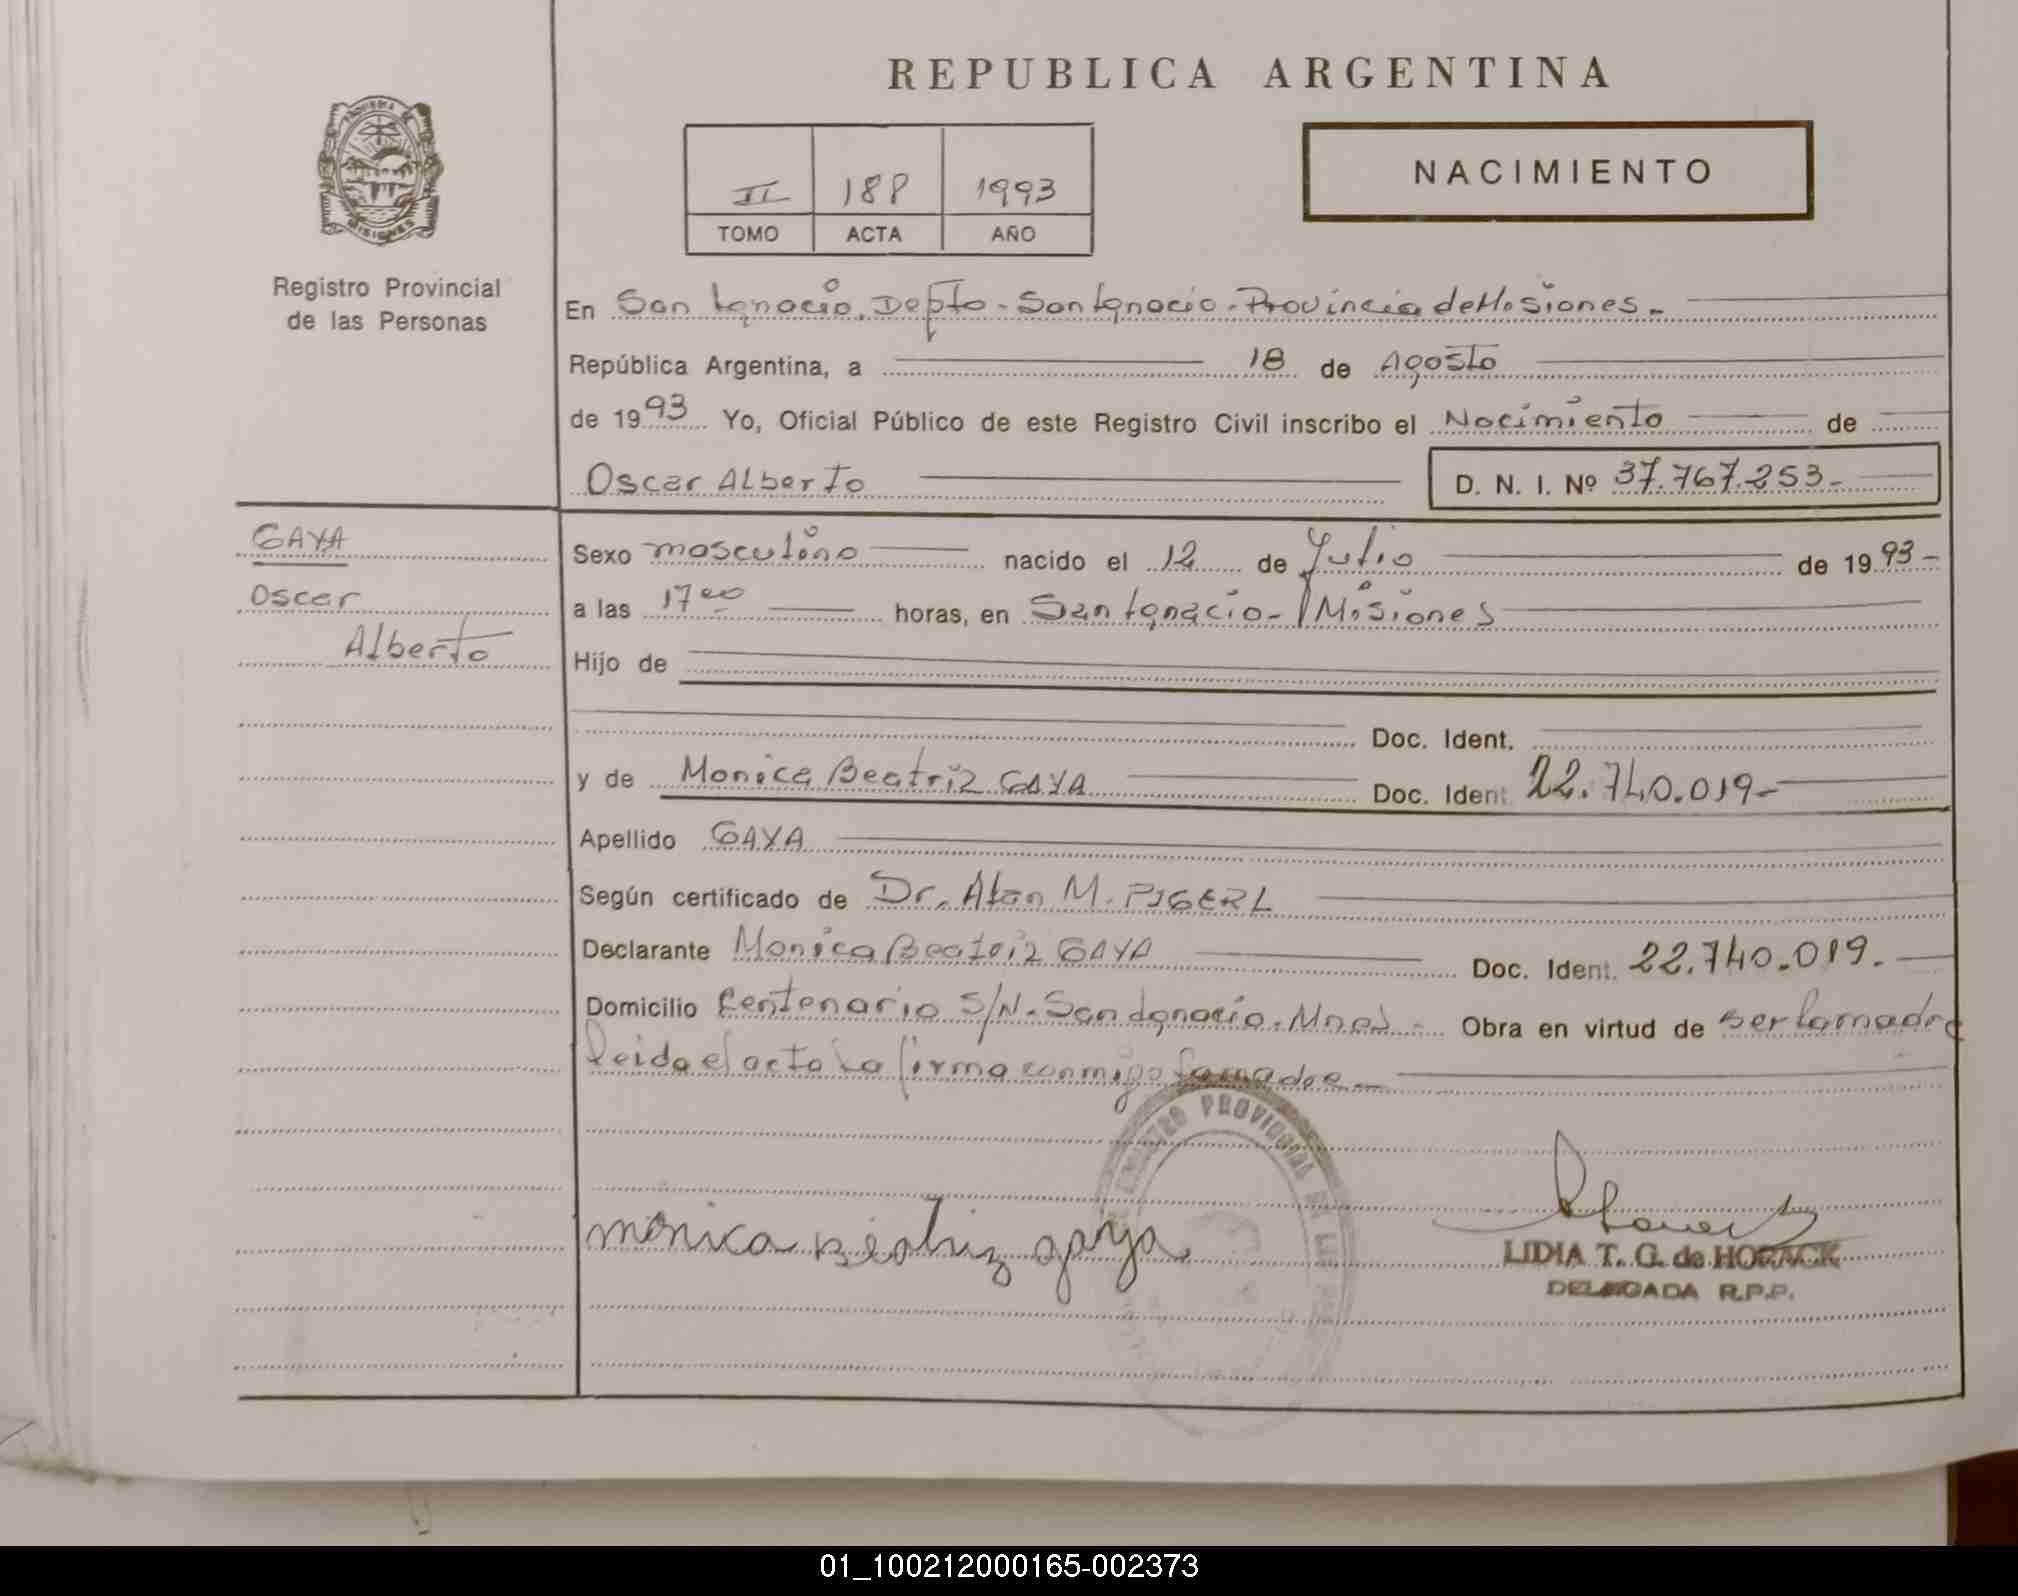 REPUBLICA ARGENTINA
PROVINCIA DE
MISIONES
Registro Provincial
de las Personas
II 188 1993
TOMO ACTA AÑO
NACIMIENTO
En San Ignacio, Depto - San Ignacio - Provincia de Misiones.-
República Argentina, a 18 de Agosto
de 1993 Yo, Oficial Público de este Registro Civil inscribo el Nacimiento de
Oscar Alberto D. N. I. Nº 37.767.253-
GAYA
Oscar
Alberto
Sexo masculino nacido el 12 de Julio de 1993-
a las 17 00 horas, en San Ignacio - Misiones
Hijo de
Doc. Ident.
y de Monica Beatriz GAYA Doc. Ident. 22.740.019-
Apellido GAYA
Según certificado de Dr. Alan M. PIGERL
Declarante Monica Beatriz GAYA Doc. Ident. 22.740.019.-
Domicilio Centenario S/N. San Ignacio. Mnes - Obra en virtud de ser la madre
leida el acta la firma conmigo la madre-
REGISTRO PROVINCIAL DE LAS
monica Beatriz gaya.
LIDIA T. G. de HORACK
DELEGADA R.P.P.
01_100212000165-002373